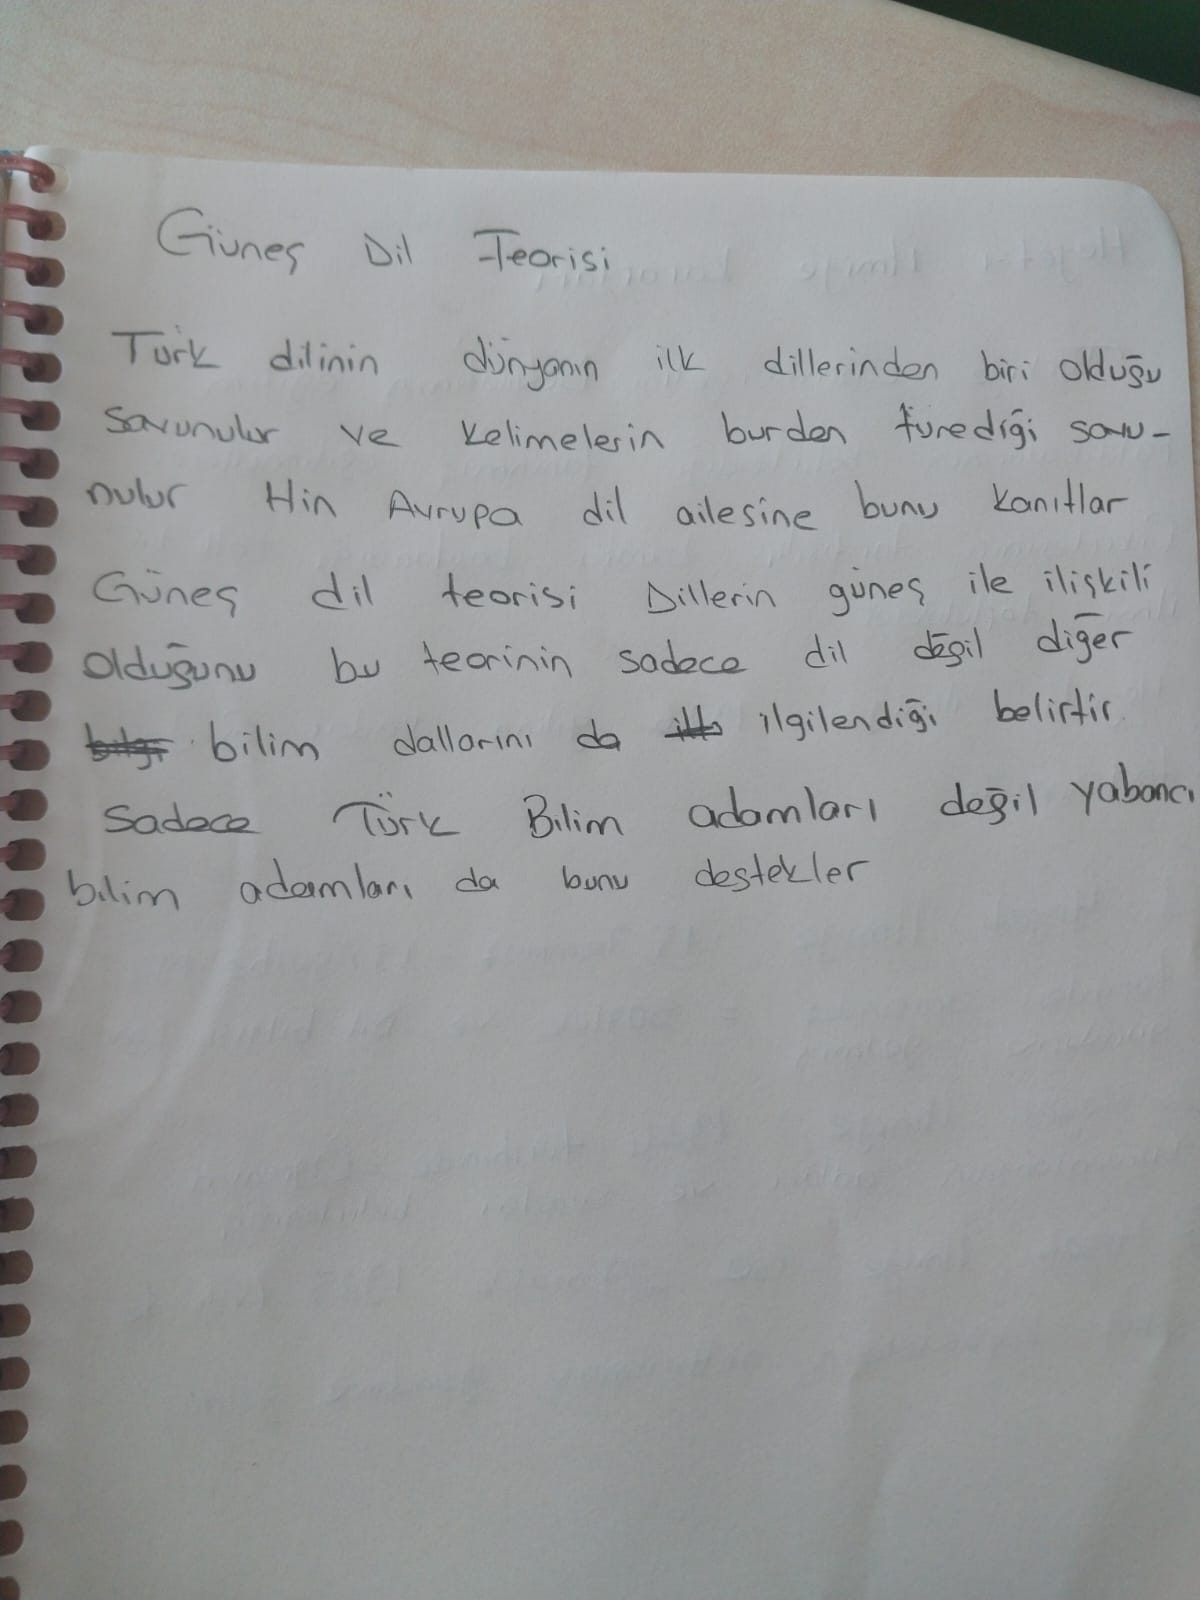 Güneş Dil Teorisi
Türk dilinin dünyanın ilk dillerinden biri olduğu
savunulur ve kelimelerin burden türediği savu-
nulur Hin Avrupa dil ailesine bunu kanıtlar
Güneş dil teorisi Dillerin güneş ile ilişkili
olduğunu bu teorinin sadece dil değil diğer
bilim dallarını da ilgilendiği belirtir
Sadece Türk Bilim adamları değil yabancı
bilim adamları da bunu destekler